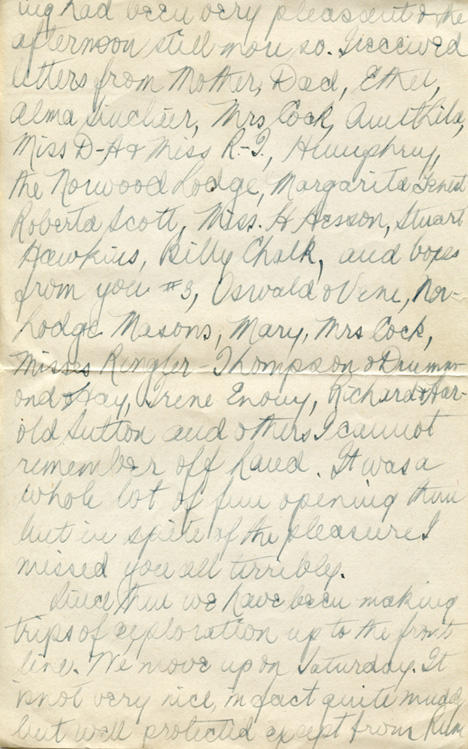 ing had been very pleasent & the
afternoon still more so. I received
letters from Mother, Dad, Ethel,
Alma Sinclair, Mrs Cock, Aunt Hilda,
Miss D-A & Miss R-T., Humphrey,
the Norwood Lodge, Margarita
Roberta Scott, Miss. H Hesson, Stuart
Hawkins, Billy Chalk, and boxes
from you #3, Oswald & Vene, Nor-
Lodge Masons, Mary, Mrs Cock,
Misses Ringler-Thompson & Drumm-
ond Hay, Irene, Richard & Har-
old Sutton and others I cannot
remember off hand. It was a
whole lot of fun opening them
but in spite of the pleasure I
missed you all terribly.
Since then we have been making
trips of exploration up to the front
line. We move up on Saturday. It
is not very nice, in fact quite muddy
but well protected except from